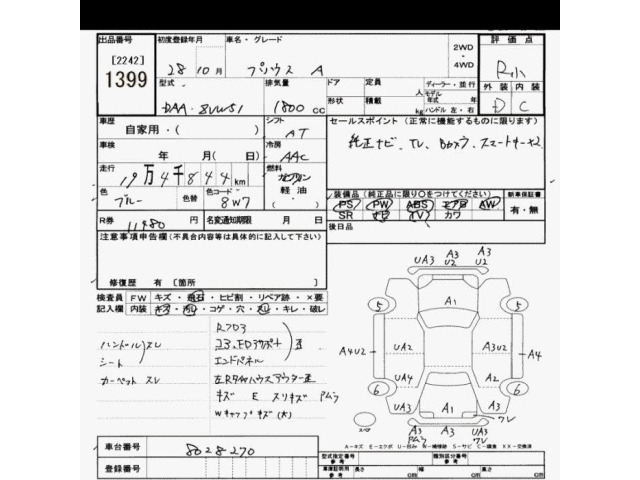 出品番号
[2242]
1399
初度登録年月
28年10月
車名・グレード
プリウス A
2WD
・
4WD
評価点
R小
外装 内装
D C
型式
DAA-8VW51
排気量
1800 CC
ドア
形状
定員
人
積載
kg
ディーラー・並行
モデル年式 年式
ハンドル 左・右
車歴
自家用・( )
シフト
AT
セールスポイント (正常に機能するものに限ります)
純正ナビ、TV、Bカメラ、スマートキー×2
車検
年 月(日)
冷房
AAC
走行
19万4千844km
燃料
ガソリン
軽油
色
ブルー
色替
色コード
8W7
装備品 (純正品に限り○をつけてください)
新車保証書
PS PW ABS エアB AW
SR ナビ TV カワ
有・無
R券
11480
名変通知期限 月 日
後日品
注意事項申告欄(不具合内容等は具体的に記入して下さい)
修復歴 有 [箇所 ]
検査員 FW キズ・飛石・ヒビ割・リペア跡・×要
記入欄 内装 キズ・汚レ・コゲ・穴・スレ・キレ・破レ
ハンドルスレ
シート
カーペットスレ
エンドパネル
キズ E スリキズ
Wキャップキズ(大)
UA3 A3 U2 A3 U2
A1
5 5
A4U2 UA2 A3U2 A4
UA4 A2
6 6
A1
UA3 A3 A3 UA3
ワレ
スペア
A-キズ E-エクボ U-凹み W-補修跡 S-サビ C-腐食 XX-交換済
車台番号
8028270
登録番号
型式指定番号
参考
類別区分番号
参考
車庫証明用
参考
長さ cm
幅 cm
高さ cm